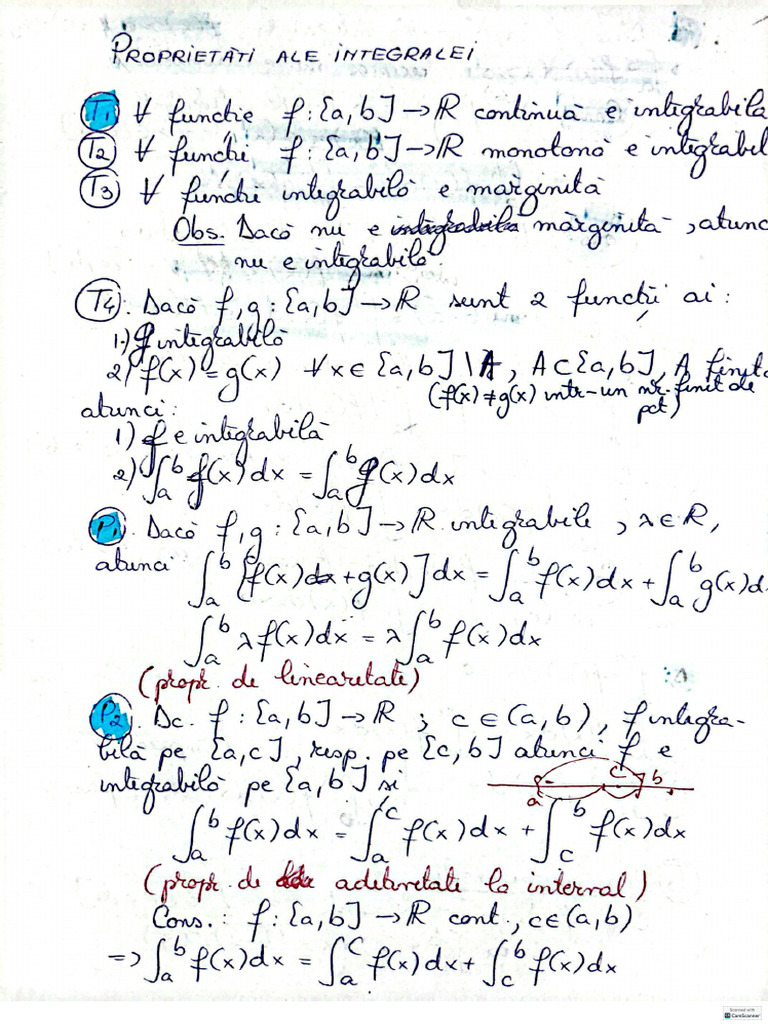 PROPRIETĂTI ALE INTEGRALEI
T1 ∀ functie f : [a,b] → R continuă e integrabila
T2 ∀ funcți f : [a,b] → R monotonă e integrabil
T3 ∀ funcți integrabilă e marginită
Obs. Dacă nu e mărginită, atunc
nu e integrabilă
T4. Dacă f, g : [a,b] → R sunt 2 funcții ai :
1.) f integrabilă
2) f(x) = g(x) ∀ x ∈ [a,b] \ A, A ⊂ [a,b], A finit
(f(x) ≠ g(x) intr-un nr. finit de
pct)
atunci :
1) g e integrabilă
2) ∫_a^b f(x)dx = ∫_a^b g(x)dx
P1. Dacă f, g : [a,b] → R integrabile, λ ∈ R,
atunci ∫_a^b [f(x) + g(x)]dx = ∫_a^b f(x)dx + ∫_a^b g(x)d
∫_a^b λ f(x)dx = λ ∫_a^b f(x)dx
(propr. de liniaritate)
P2. Dc. f : [a,b] → R ; c ∈ (a,b), f integra-
bilă pe [a,c], resp. pe [c,b] atunci f e
integrabilă pe [a,b] și
a c b
∫_a^b f(x)dx = ∫_a^c f(x)dx + ∫_c^b f(x)dx
(propr. de aditivitate la interval)
Cons. : f : [a,b] → R cont., c ∈ (a,b)
=> ∫_a^b f(x)dx = ∫_a^c f(x)dx + ∫_c^b f(x)dx
Scanned with
CamScanner